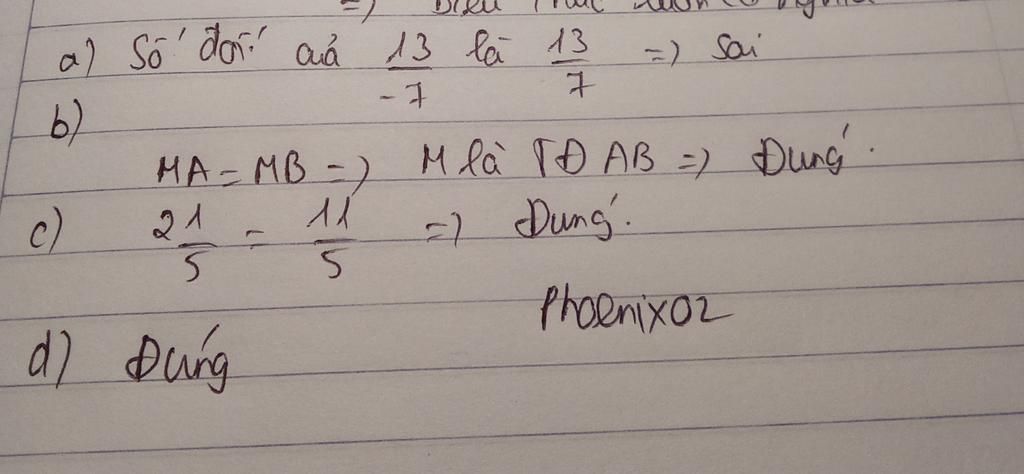 =) Biểu thức luôn có nghiệm
a) Số đối của 13/-7 là 13/7 =) Sai
b)
MA = MB =) M là TĐ AB =) Đúng.
c) 2 1/5 = 11/5 =) Đúng.
Phoenix02
d) Đúng